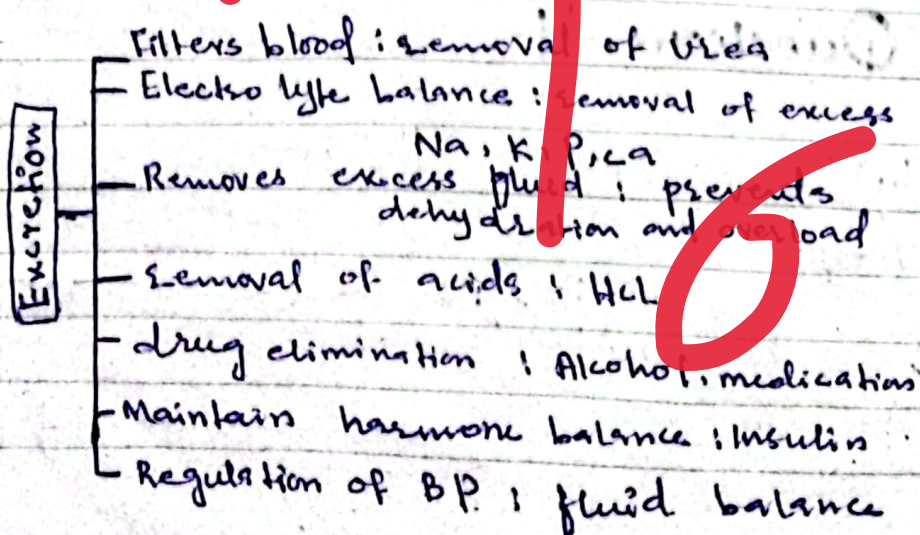 Filters blood : removal of Urea
Electro lyte balance : removal of excess
Na, K, P, ca
Excretion
Removes excess fluid : prevents
dehydration and overload
removal of acids : HCL
drug elimination : Alcohol, medications
Maintain harmone balance : Insulin
Regulation of BP : fluid balance
16